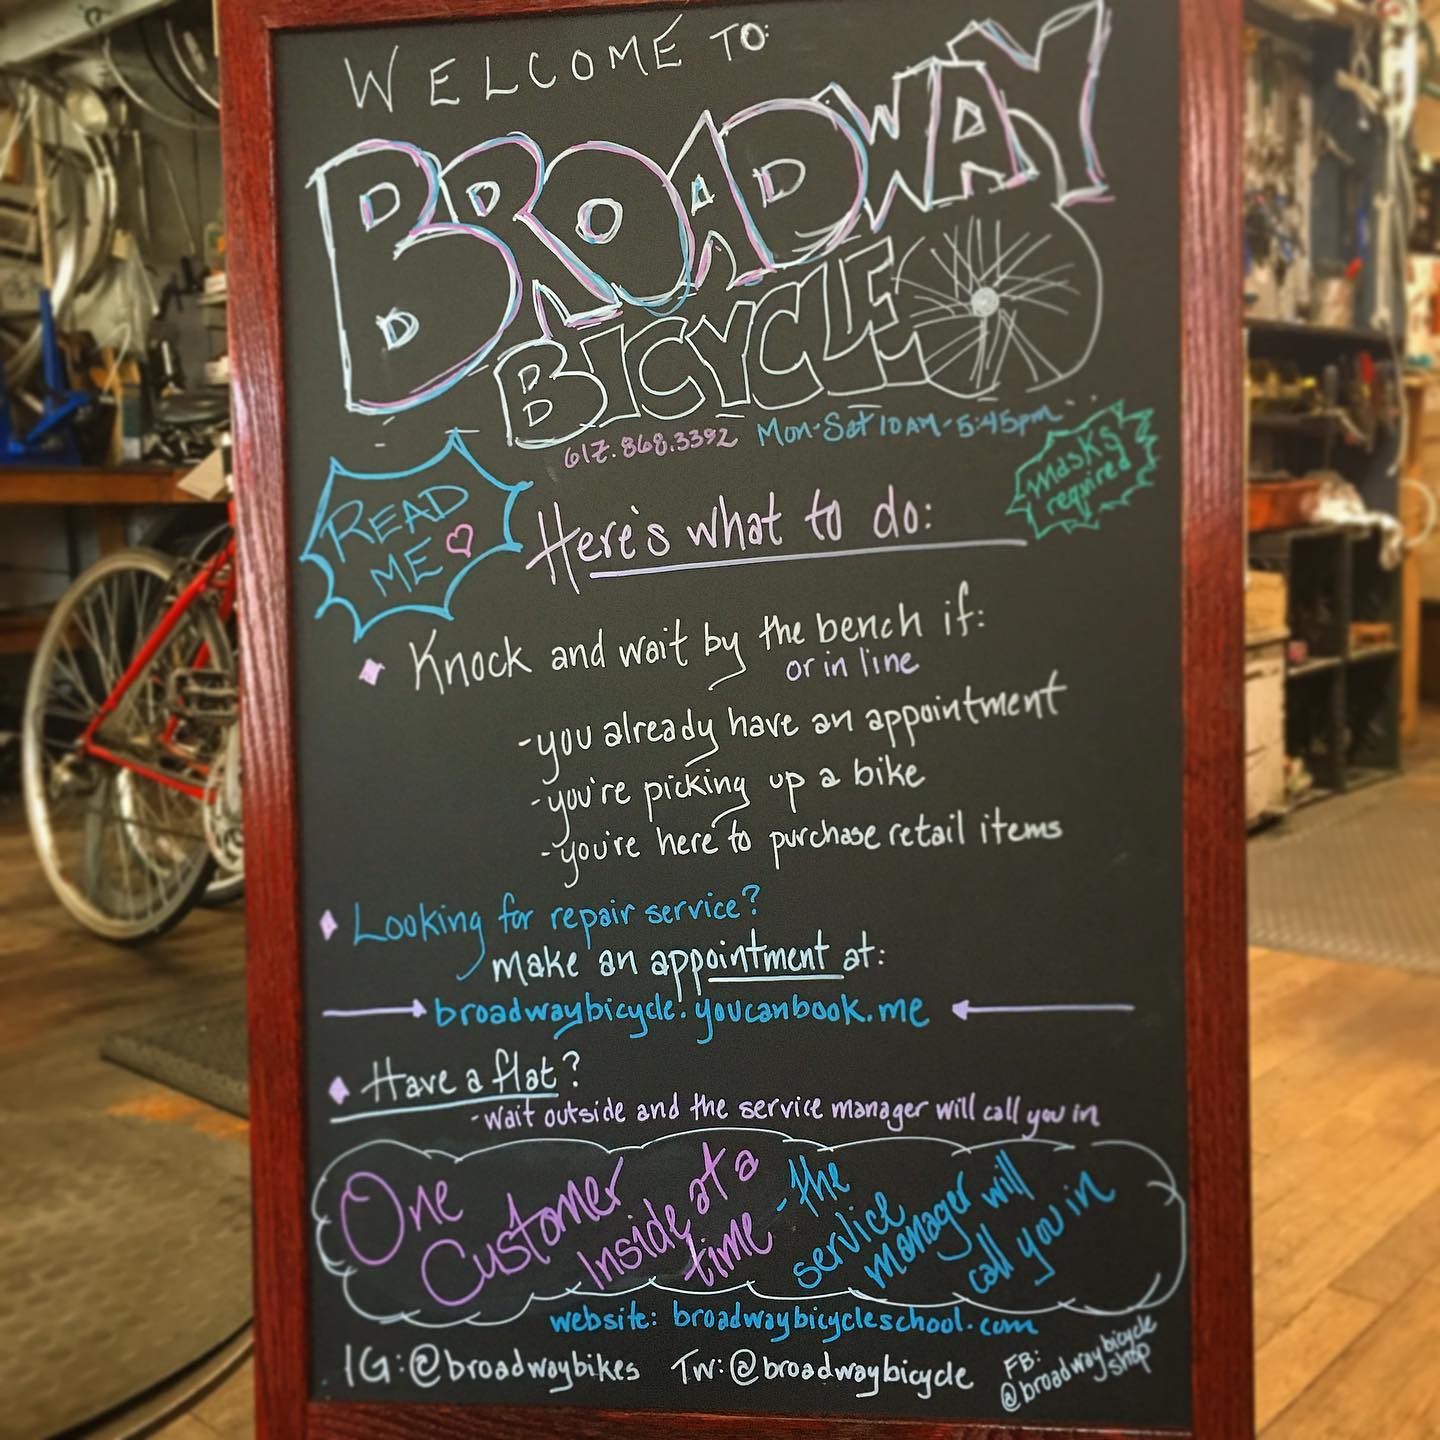 WELCOME TO:
BROADWAY
BICYCLE
617.868.3392 Mon-Sat 10AM-5:45pm
READ
ME
masks
required
Here's what to do:
Knock and wait by the bench if:
or in line
-you already have an appointment
-you're picking up a bike
-you're here to purchase retail items
Looking for repair service?
make an appointment at:
broadwaybicycle.youcanbook.me
Have a flat?
-wait outside and the service manager will call you in
One
Customer
Inside at a
time - the
service
manager will
call you in
website: broadwaybicycleschool.com
IG:@broadwaybikes Tw:@broadwaybicycle
FB:
@broadwaybicycle
shop